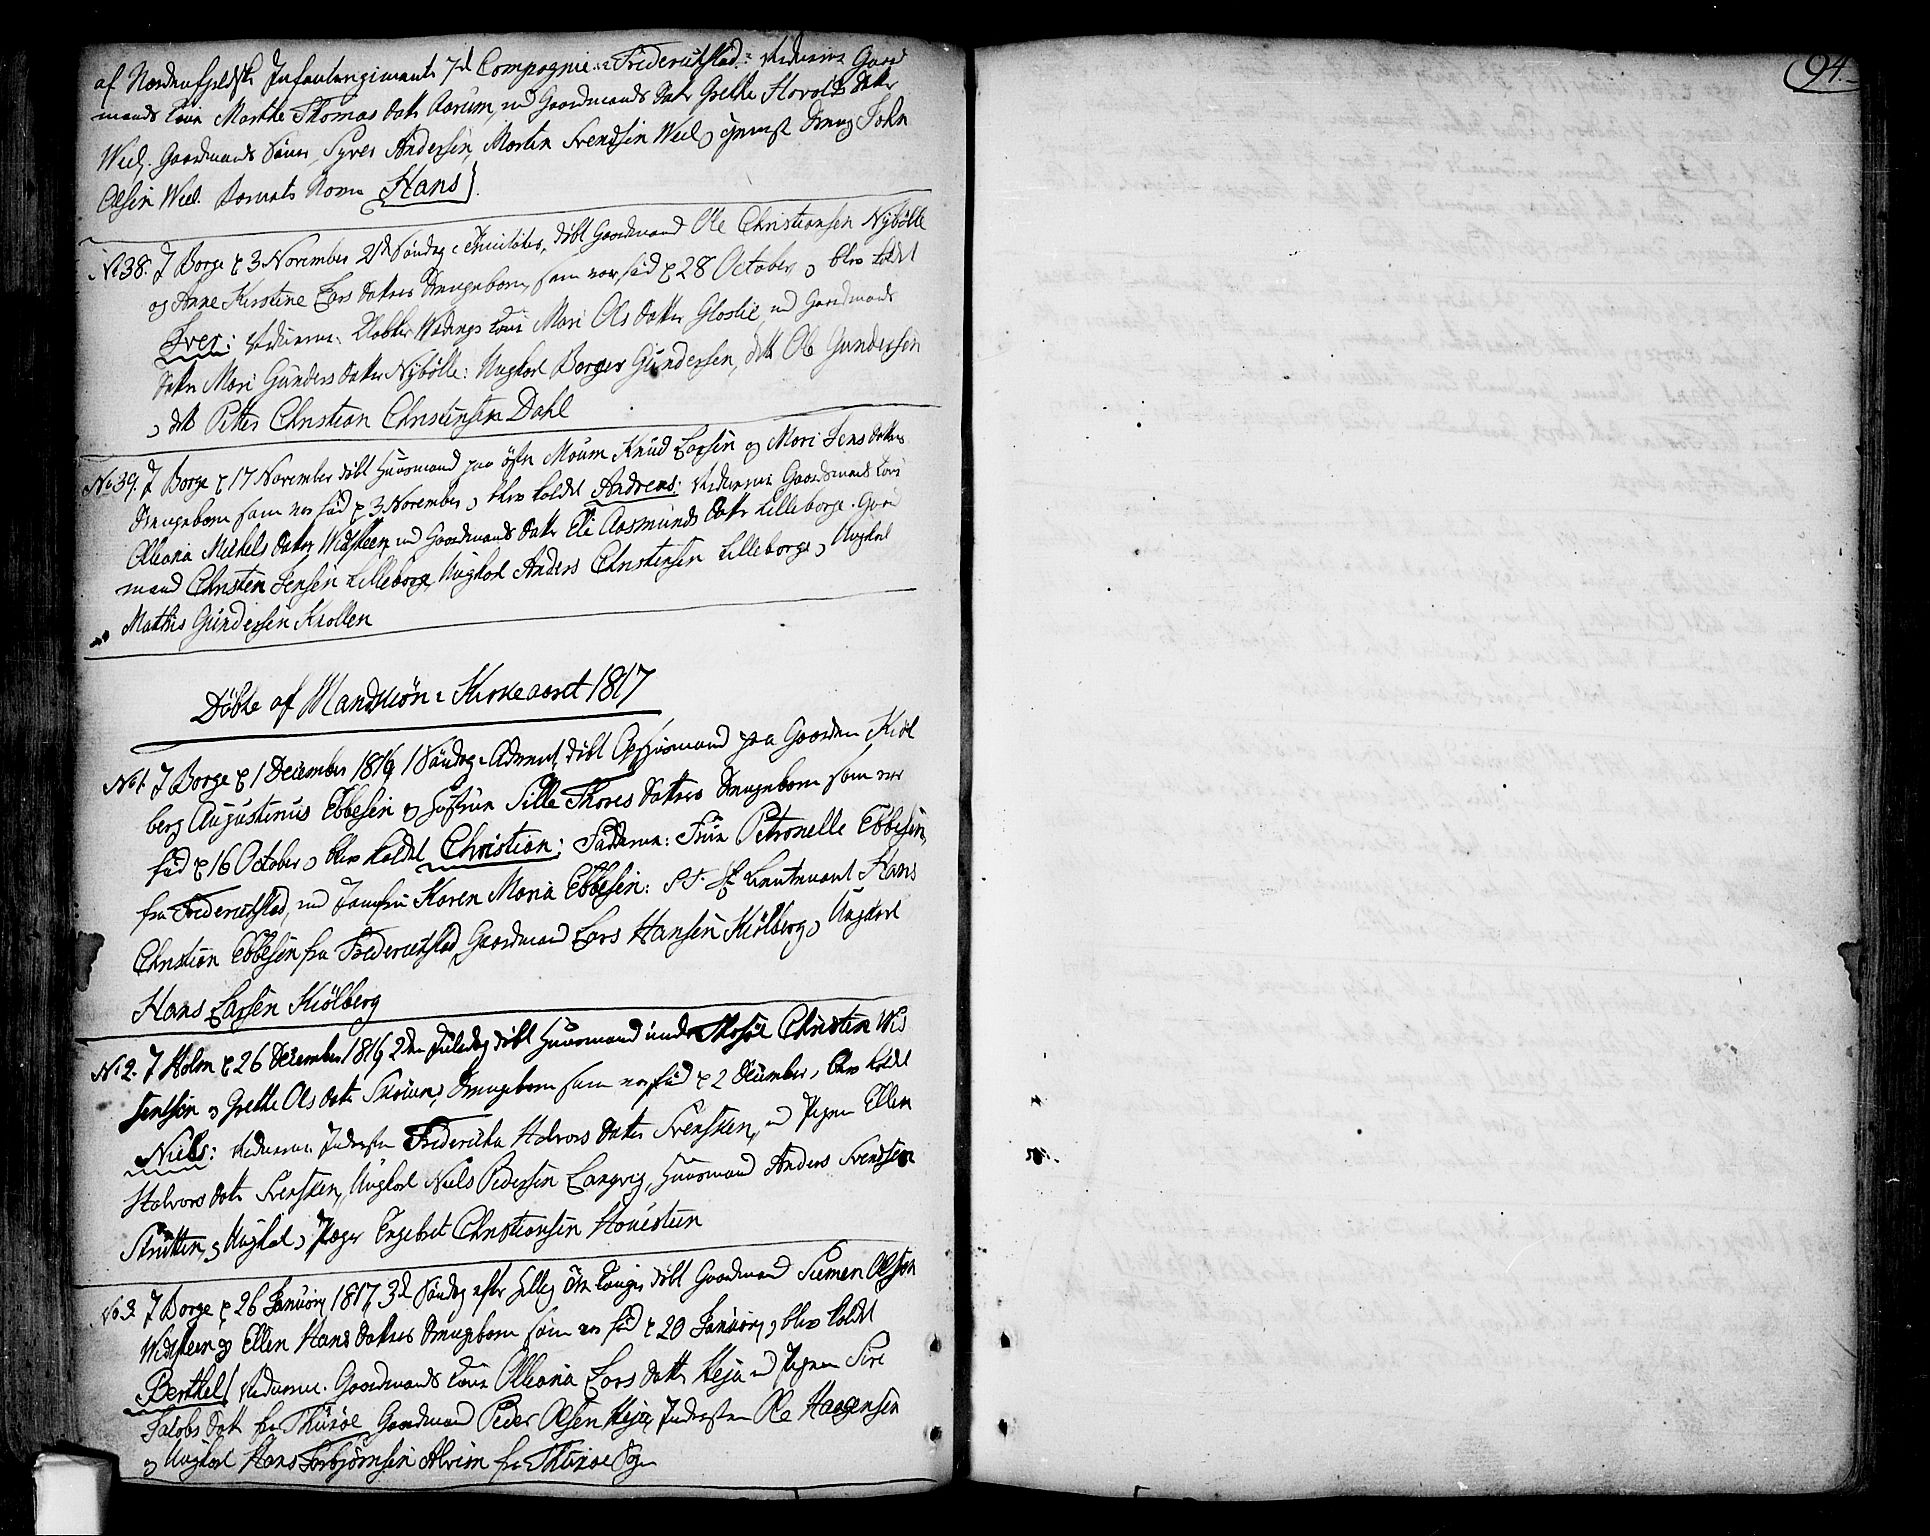 af Nordenfjeldsk Infanteregiments 7de Compagnie i Friderichstad: Fadderne Gaard
mands Kone Marthe Thomas datter Aarum, og Gaardmands datter Grethe Harolds datter
Weel, Gaardmands Sönner Syver Andersen, Morten Svendsen Weel og Ole John
Olsen Weel. Barnets Navn Hans
No 38. I Borge d 3 November 21de Söndag Trinitatis, döbt Gaardmand Ole Christiansen Nÿbölle
og Anne Kirstine Lars datters Drengebarn, som var föd d 28 October, og blev kaldt
Iver: Fadderne: Klokker Wedings Kone Mari Ols datter Gloslie, og Gaardmands
datter Mari Gunders datter Nÿbölle: Ungkarl Borger Gundersen, dito Ole Gundersen
og dito Petter Christian Christensen Dahl
No 39. I Borge d 17 November döbt Huusmand paa östre Moum Knud Larsen og Mari Jens datters
Drengebarn som var föd d 3 November, og blev kaldet Andreas: Fadderne Gaardmands Kone
Olleana Michels datter Widsteen, og Gaardmands datter Eli Aasmunds datter Lilleborge. Gaard
mand Christen Jensen Lilleborge, Ungkarl Anders Christensen Lilleborge, og Ungkarl
Mathis Gundersen Krollen
Döbte af Mandkiön i Kirkeaaret 1817
No 1. I Borge d 1 December 1816, 1 Söndag i Advent, döbt Huusmand paa Gaarden Kiöl
berg Augustinus Ebbesen og Hustrue Sille Thores datters Drengebarn som var
föd d 16 October og blev kaldet Christian; Fadderne: Frue Petronelle Ebbesen
fra Friderichstad, og Jomfru Karen Maria Ebbesen: S T. Hr Lieutenant Hans
Christian Ebbesen fra Friderichstad, Gaardmand Lars Hansen Kiölberg, og Ungkarl
Hans Larsen Kiölberg
No 2. I Holm d 26 December 1816, 2den Juledag döbt Huusmand under Thosöe Christen Wis
sensön og Grethe Ols datter Drengebarn som var föd d 2 December, og blev kaldet
Niels: Fadderne. Inderste Friderikka Halvors datter Svensken, og Pigen Ellen
Halvors datter Svensken, Ungkarl Niels Pedersen Langvig, Huusmand Anders Svendsen
Strutten, og Ungkarl og Jæger Engebret Christiansen Houesteen
No 3. I Borge d 26 Januarÿ 1817, 3de Söndag efter Hellig Tre Konger, döbt Gaardmand Siemen Olssön
Widsteen og Ellen Hans datters Drengebarn som var föd d 20 Januarÿ, og blev kaldet
Berthel; Fadderne. Gaardmands Kone Olleana Lars datter Heja og Pigen Siri
Jakobs datter fra Thunöe, Gaardmand Peder Olsen Heja, Inderste Ole Haagensen
og Ungkarl Hans Torbjörnsen Alvim fra Thunöe Sogn
94.